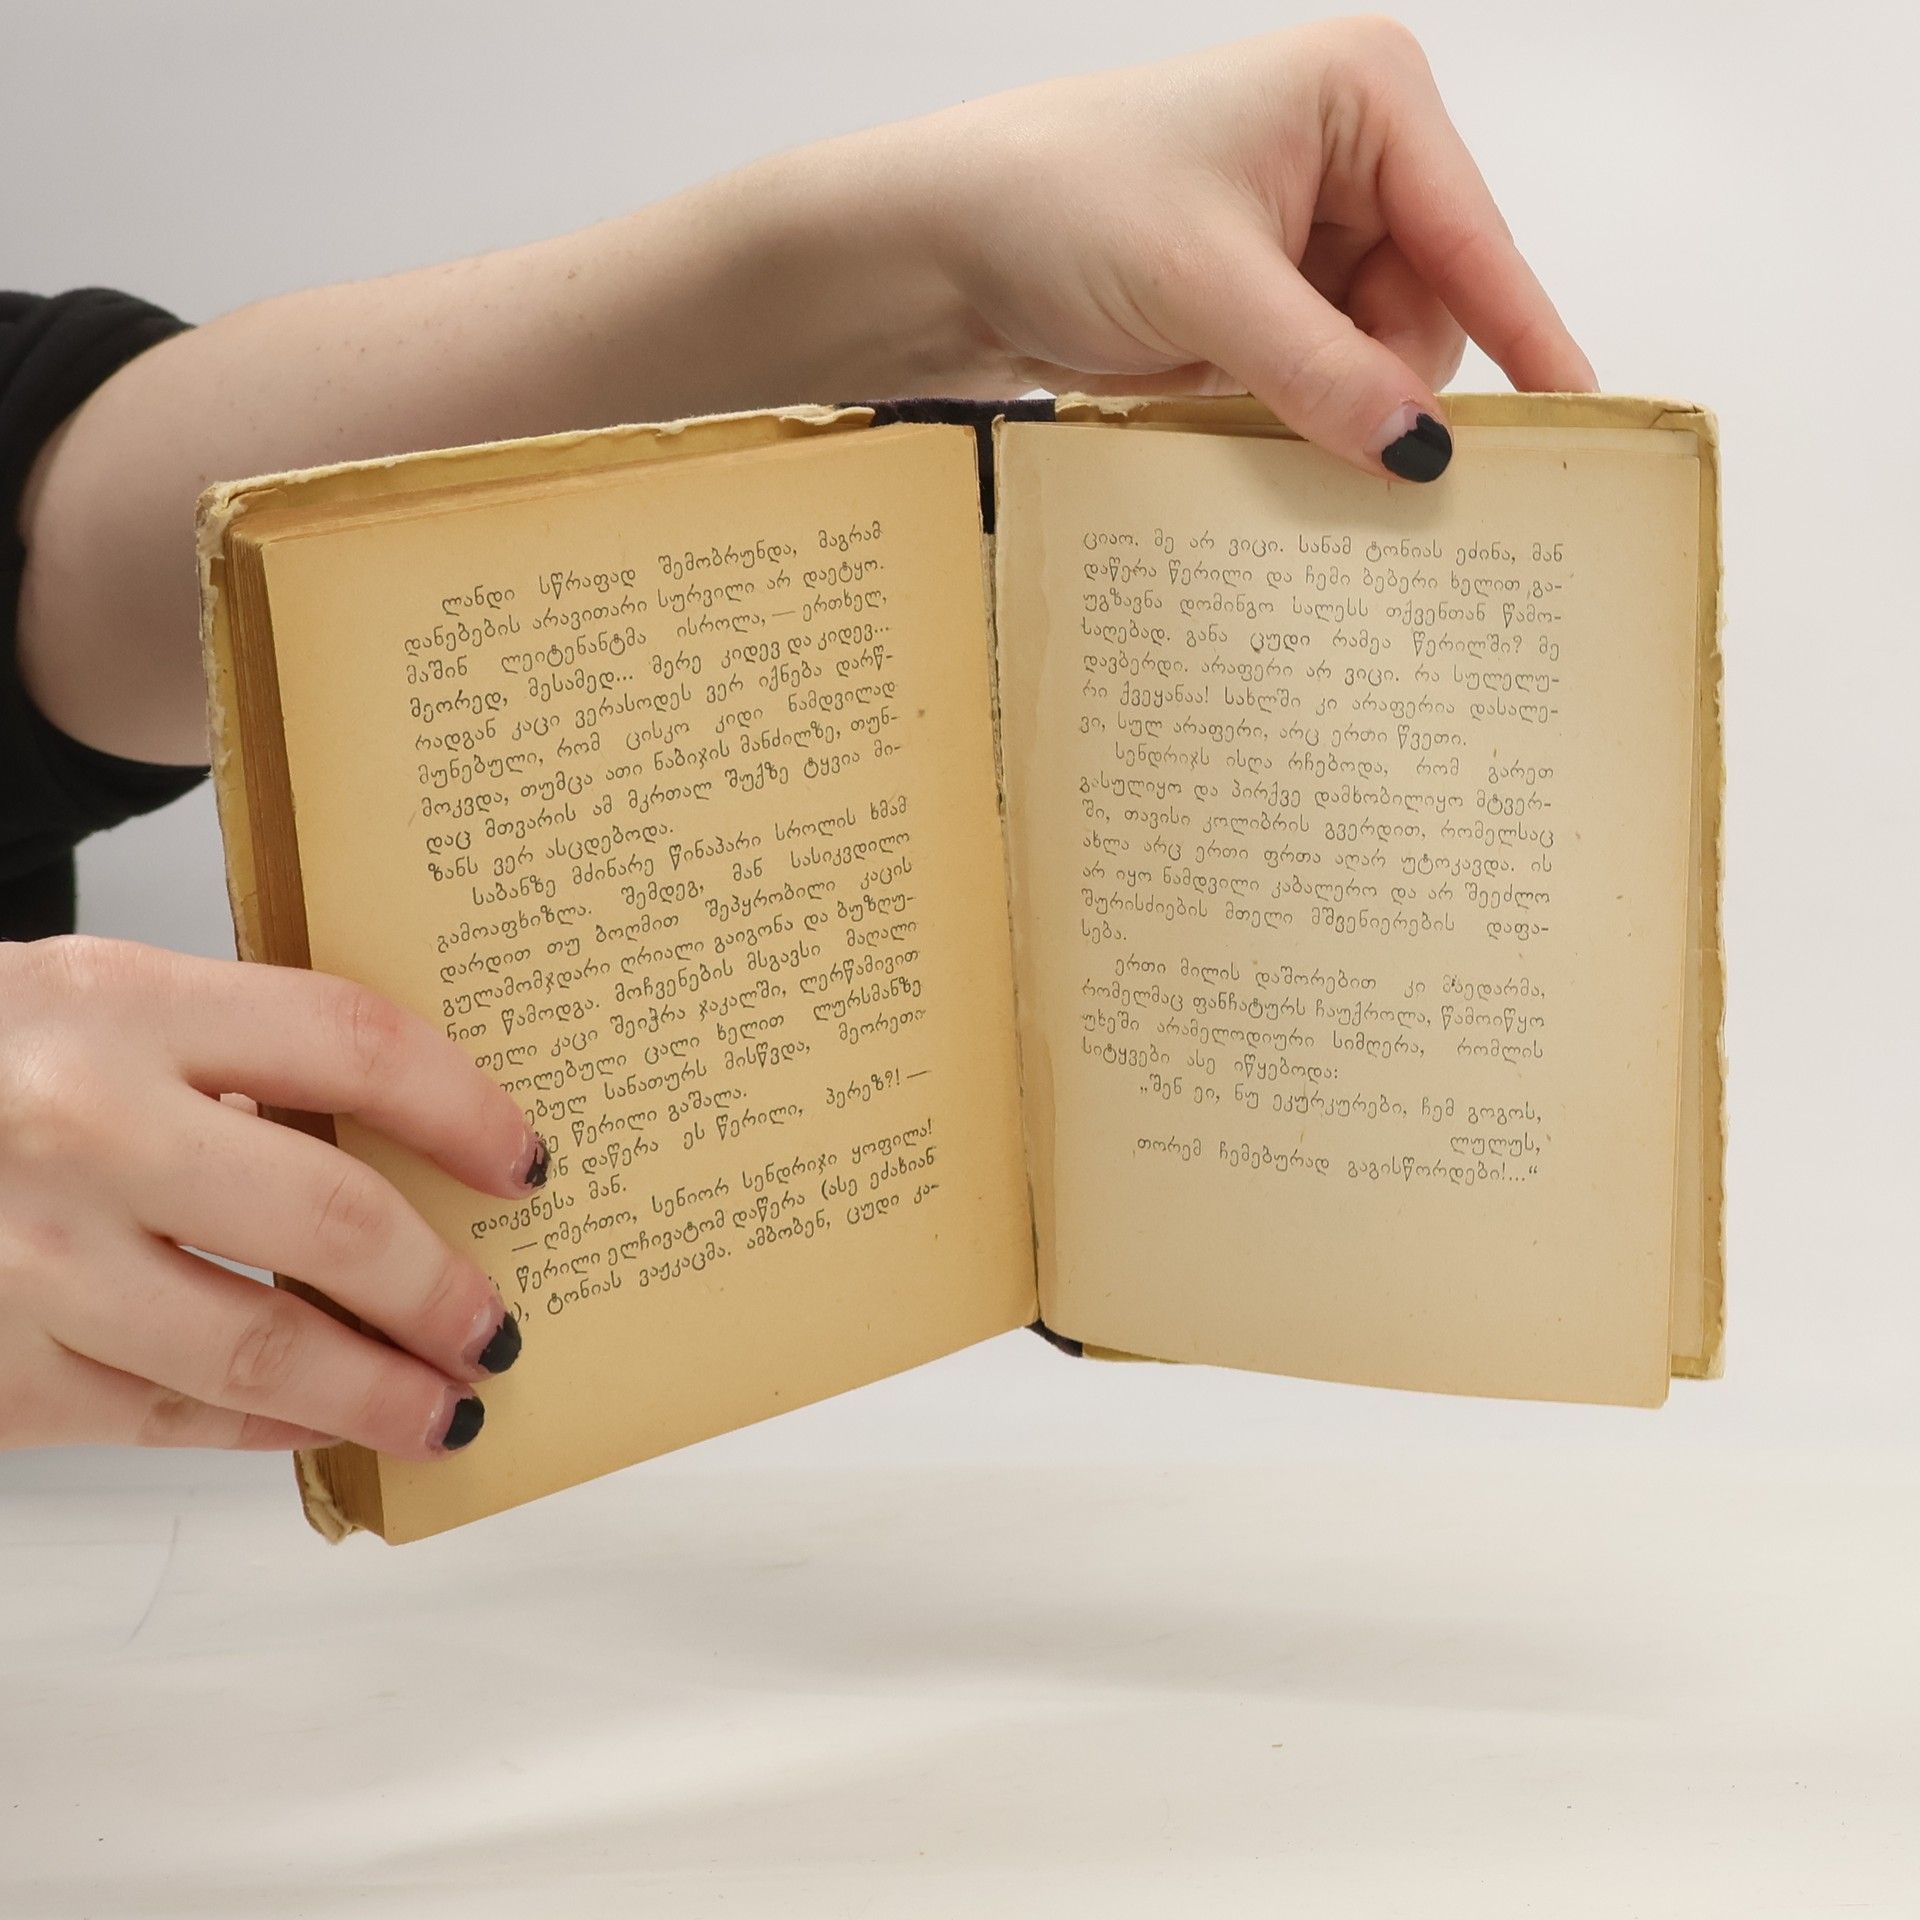 ლანდი სწრაფად შემობრუნდა, მაგრამ
დანებების არავითარი სურვილი არ დაეტყო.
მაშინ ლეიტენანტმა ისროლა, — ერთხელ,
მეორედ, მესამედ... მერე კიდევ და კიდევ...
რადგან კაცი ვერასოდეს ვერ იქნება დარწ-
მუნებული, რომ ცისკო კიდი ნამდვილად
მოკვდა, თუმცა ათი ნაბიჯის მანძილზე, თუნ-
დაც მთვარის ამ მკრთალ შუქზე ტყვია მი-
ზანს ვერ ასცდებოდა.
საბანზე მძინარე წინაპარი სროლის ხმამ
გამოაფხიზლა. შემდეგ, მან სასიკვდილო
დარდით თუ ბოღმით შეპყრობილი კაცის
გულამომჯდარი ღრიალი გაიგონა და ბუზღუ-
ნით წამოდგა. მოჩვენების მსგავსი მაღალი
თელი კაცი შეიჭრა ჯაკალში, ლერწამივით
თოლებული ცალი ხელით ლურსმანზე
ებულ სანათურს მისწვდა, მეორეთი
ზე წერილი გაშალა.
ნ დაწერა ეს წერილი, პერეზ?! —
დაიკვნესა მან.
— ღმერთო, სენიორ სენდრიჯი ყოფილა!
წერილი ელჩივატომ დაწერა (ასე ეძახიან
), ტონიას ვაჟკაცმა. ამბობენ, ცუდი კა-
ციაო. მე არ ვიცი. სანამ ტონიას ეძინა, მან
დაწერა წერილი და ჩემი ბებერი ხელით გა-
უგზავნა დომინგო სალესს თქვენთან წამო-
საღებად. განა ცუდი რამეა წერილში? მე
დავბერდი. არაფერი არ ვიცი. რა სულელუ-
რი ქვეყანაა! სახლში კი არაფერია დასალე-
ვი, სულ არაფერი, არც ერთი წვეთი.
სენდრიჯს ისღა რჩებოდა, რომ გარეთ
გასულიყო და პირქვე დამხობილიყო მტვერ-
ში, თავისი კოლიბრის გვერდით, რომელსაც
ახლა არც ერთი ფრთა აღარ უტოკავდა. ის
არ იყო ნამდვილი კაბალერო და არ შეეძლო
შურისძიების მთელი მშვენიერების დაფა-
სება.
ერთი მილის დაშორებით კი მხედარმა,
რომელმაც ფანჩატურს ჩაუქროლა, წამოიწყო
უხეში არამელოდიური სიმღერა, რომლის
სიტყვები ასე იწყებოდა:
„შენ ეი, ნუ ეკურკურები, ჩემ გოგოს,
ლულუს,
თორემ ჩემებურად გაგისწორდები!...“